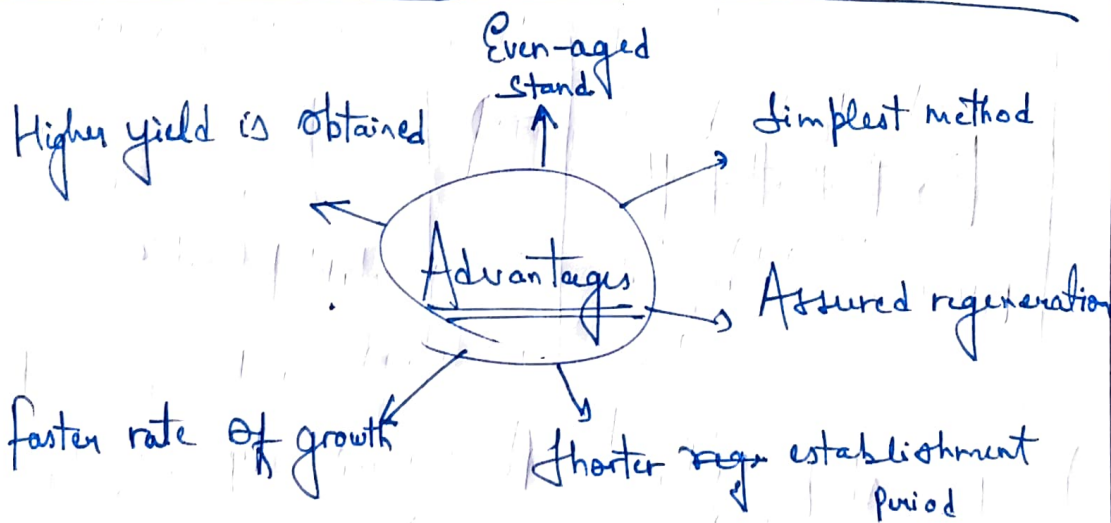 Even-aged
stand
Higher yield is obtained
Simplest method
Advantages
Assured regeneration
faster rate of growth
Shorter establishment
period